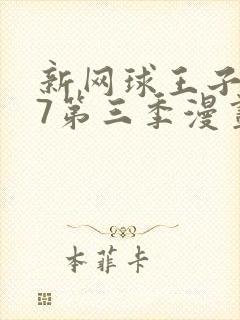 新网球王子
7第三季漫
本菲卡